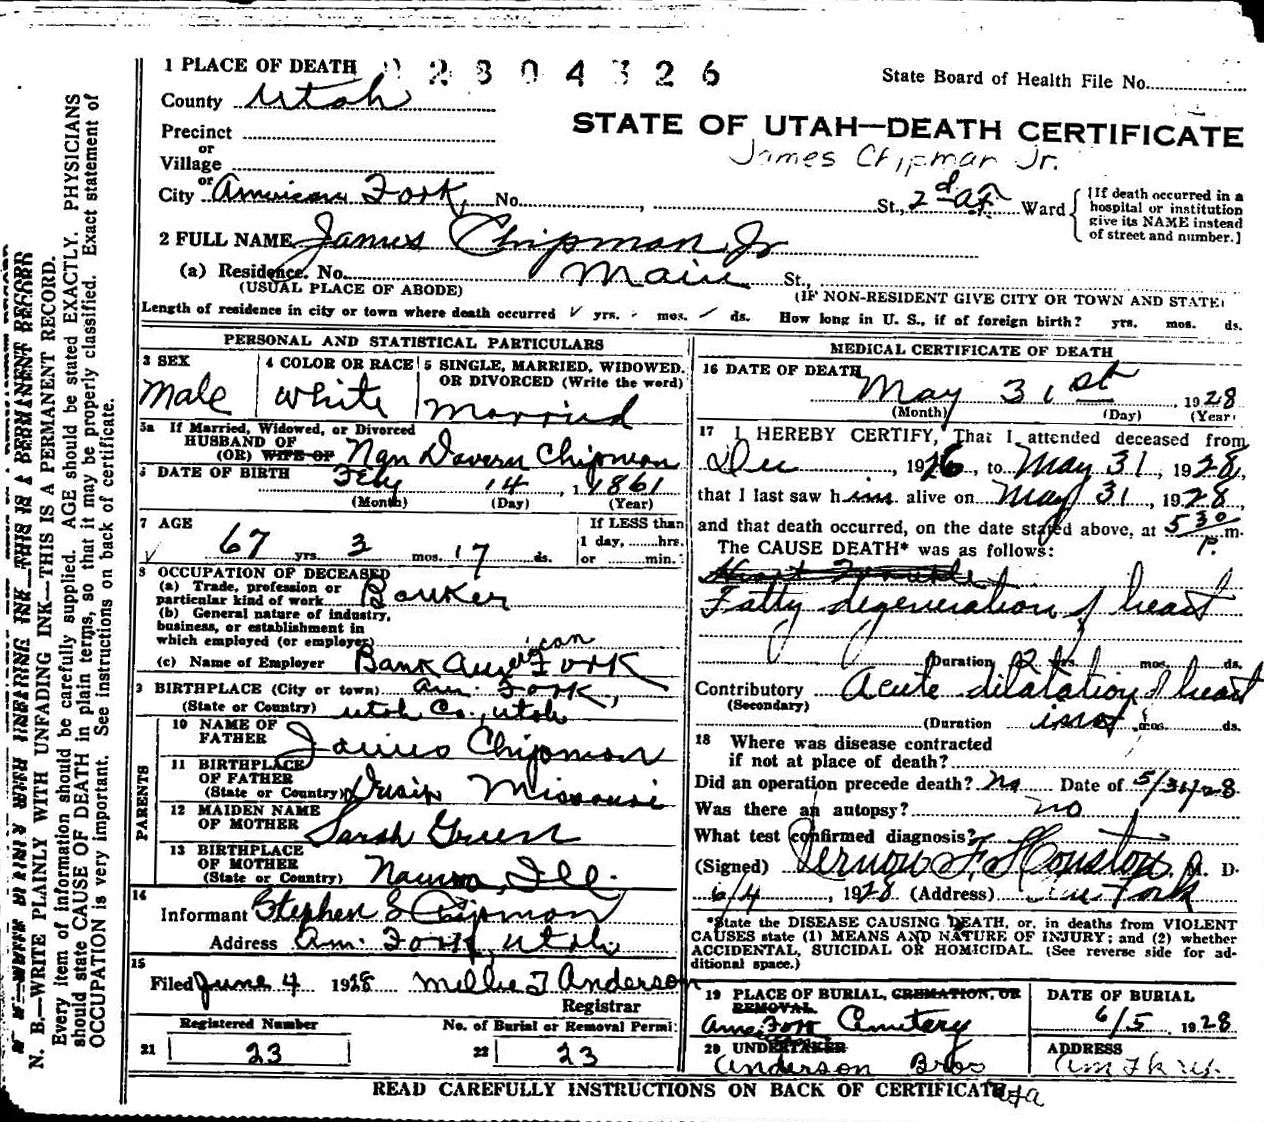 1 PLACE OF DEATH 2804326
State Board of Health File No.
County Utah
STATE OF UTAH—DEATH CERTIFICATE
James Chipman Jr.
Precinct
or
Village
or
City American Fork, No. , St., 2d Ward
[If death occurred in a
hospital or institution
give its NAME instead
of street and number.]
2 FULL NAME James Chipman Jr
(a) Residence. No. Main St.,
(USUAL PLACE OF ABODE) (IF NON-RESIDENT GIVE CITY OR TOWN AND STATE)
Length of residence in city or town where death occurred yrs. mos. ds. How long in U. S., if of foreign birth? yrs. mos. ds.
PERSONAL AND STATISTICAL PARTICULARS
3 SEX
Male
4 COLOR OR RACE
White
5 SINGLE, MARRIED, WIDOWED.
OR DIVORCED (Write the word)
Married
5a If Married, Widowed, or Divorced
HUSBAND OF
(OR) WIFE OF Nan Chipman
6 DATE OF BIRTH Feby 14, 1861
(Month) (Day) (Year)
7 AGE
67 yrs. 3 mos. 17 ds.
If LESS than
1 day, ......hrs.
or ......min.
8 OCCUPATION OF DECEASED
(a) Trade, profession or
particular kind of work Banker
(b) General nature of industry,
business, or establishment in
which employed (or employer)
(c) Name of Employer Bank American Fork
9 BIRTHPLACE (City or town) Am. Fork,
(State or Country) Utah Co., Utah
PARENTS
10 NAME OF
FATHER James Chipman
11 BIRTHPLACE
OF FATHER
(State or Country) Missouri
12 MAIDEN NAME
OF MOTHER Sarah Green
13 BIRTHPLACE
OF MOTHER
(State or Country) Nauvoo, Ill.
14
Informant Stephen Chipman
Address Am. Fork, Utah
15
Filed June 4 1928 Anderson
Registrar
Registered Number
21 23
No. of Burial or Removal Permit
22 23
MEDICAL CERTIFICATE OF DEATH
16 DATE OF DEATH
May 31st, 1928
(Month) (Day) (Year)
17 I HEREBY CERTIFY, That I attended deceased from
Dec , 1926, to May 31, 1928,
that I last saw him alive on May 31, 1928,
and that death occurred, on the date stated above, at 5 30 P. m.
The CAUSE DEATH* was as follows:
Heart Trouble
Fatty degeneration of heart
(Duration 2 yrs. mos. ds.
Contributory Acute dilatation of heart
(Secondary)
(Duration mos. ds.
18 Where was disease contracted
if not at place of death?
Did an operation precede death? No Date of 5/31/28
Was there an autopsy? no
What test confirmed diagnosis?
(Signed) Vernon F. Houston, M. D.
6/4 1928 (Address) Am Fork
*State the DISEASE CAUSING DEATH, or, in deaths from VIOLENT
CAUSES state (1) MEANS AND NATURE OF INJURY; and (2) whether
ACCIDENTAL, SUICIDAL OR HOMICIDAL. (See reverse side for ad-
ditional space.)
19 PLACE OF BURIAL, CREMATION, OR
REMOVAL
Amer Fork Cemetery
DATE OF BURIAL
6/5 1928
20 UNDERTAKER
Anderson Bros
ADDRESS
Am Fk
READ CAREFULLY INSTRUCTIONS ON BACK OF CERTIFICATE
N. B.—WRITE PLAINLY WITH UNFADING INK—THIS IS A PERMANENT RECORD.
Every item of information should be carefully supplied. AGE should be stated EXACTLY. PHYSICIANS
should state CAUSE OF DEATH in plain terms, so that it may be properly classified. Exact statement of
OCCUPATION is very important. See instructions on back of certificate.